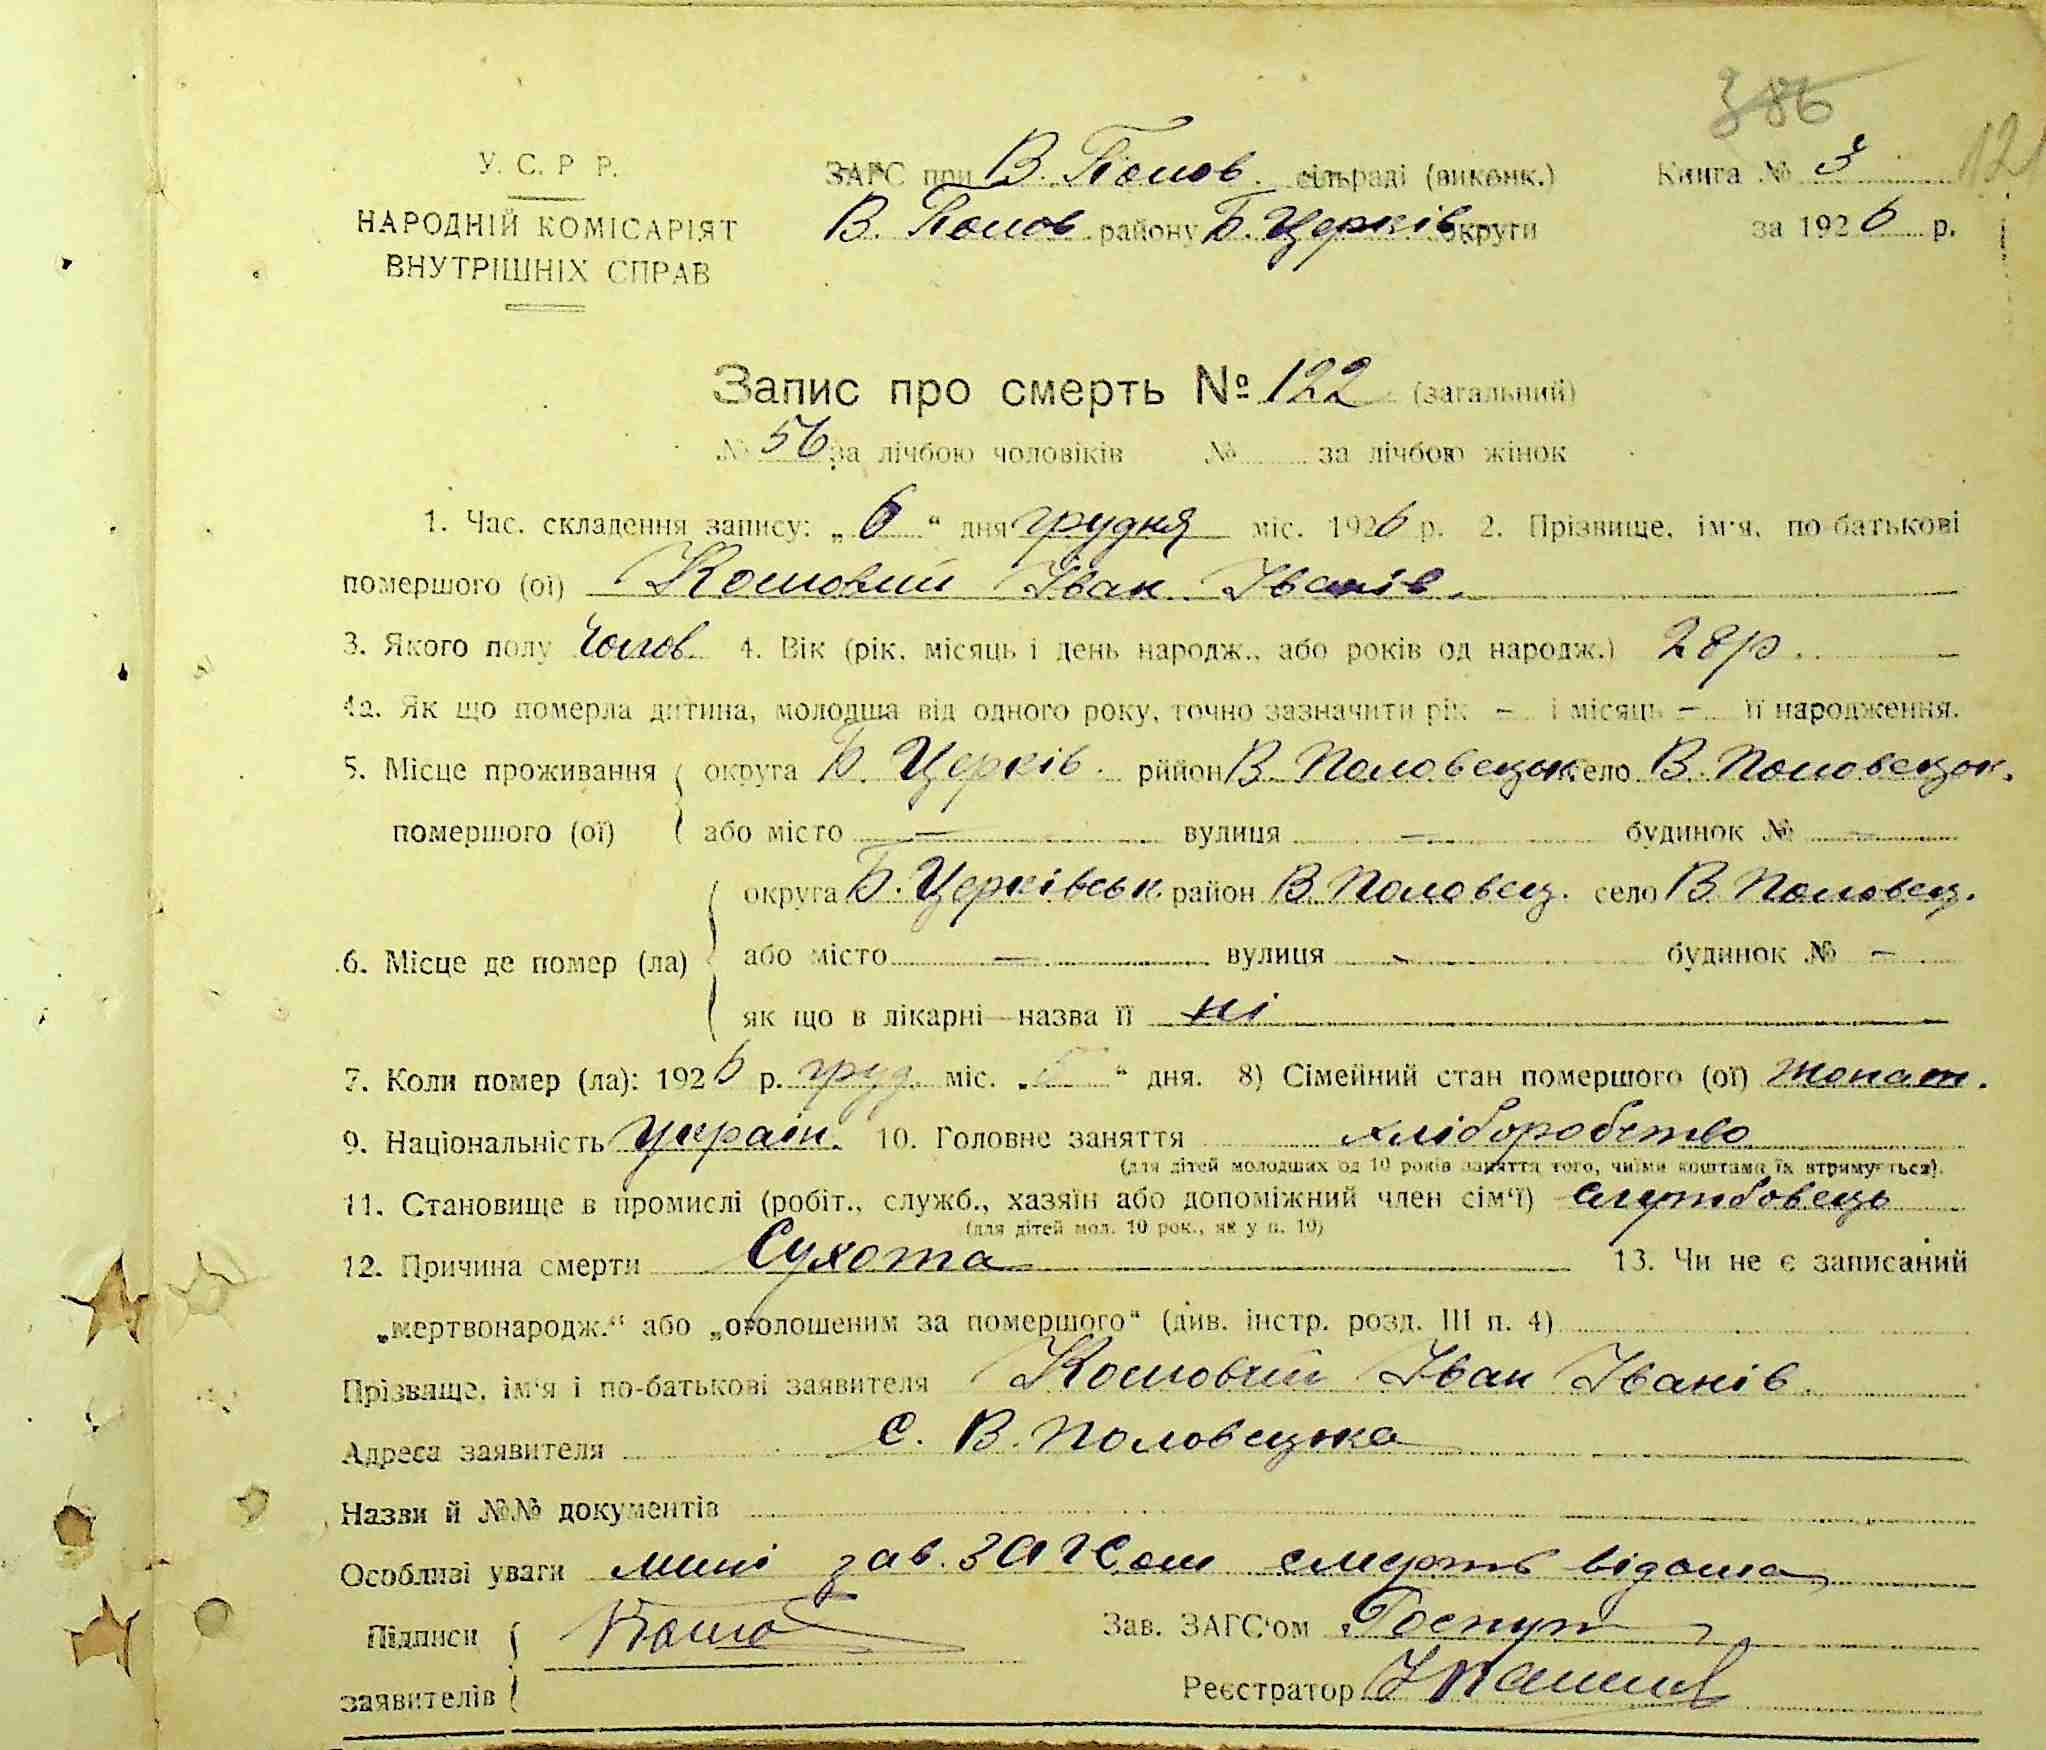 386
У. С. Р Р.
ЗАГС при В. Полов. сільраді (виконк.)
Книга № 3
121
НАРОДНІЙ КОМІСАРІЯТ
В. Полов району Б. Церків округи
за 1926 р.
ВНУТРІШНІХ СПРАВ
Запис про смерть № 122 (загальний)
№ 56 за лічбою чоловіків № за лічбою жінок
1. Час. складення запису: „6“ дня грудня міс. 1926 р. 2. Прізвище, ім'я, по-батькові
помершого (ої) Кошовий Іван Іванів.
3. Якого полу чолов. 4. Вік (рік, місяць і день народж., або років од народж.) 28 р. –
4а. Як що померла дитина, молодша від одного року, точно зазначити рік – і місяць – її народження.
5. Місце проживання округа Б. Церків. район В. Половецьк. село В. Половецьк.
помершого (ої) або місто – вулиця – будинок № –
округа Б. Церківськ. район В. Половец. село В. Половец.
6. Місце де помер (ла) або місто – вулиця – будинок № –
як що в лікарні—назва її ні
7. Коли помер (ла): 1926 р. груд. міс. „5“ дня. 8) Сімейний стан помершого (ої) жонат.
9. Національність Україн. 10. Головне заняття хліборобство
(для дітей молодших од 10 років заняття того, чиїми коштами їх втримується).
11. Становище в промислі (робіт., служб., хазяїн або допоміжний член сім'ї) службовець
(для дітей мол. 10 рок., як у п. 10)
12. Причина смерти Сухота 13. Чи не є записаний
„мертвонародж.“ або „оголошеним за помершого“ (див. інстр. розд. III п. 4)
Прізвище, ім'я і по-батькові заявителя Кошовий Іван Іванів.
Адреса заявителя с. В. Половецька
Назви й №№ документів
Особливі уваги мині зав. ЗАГСом смерть відома
Підписи Зав. ЗАГС'ом
заявителів Реєстратор